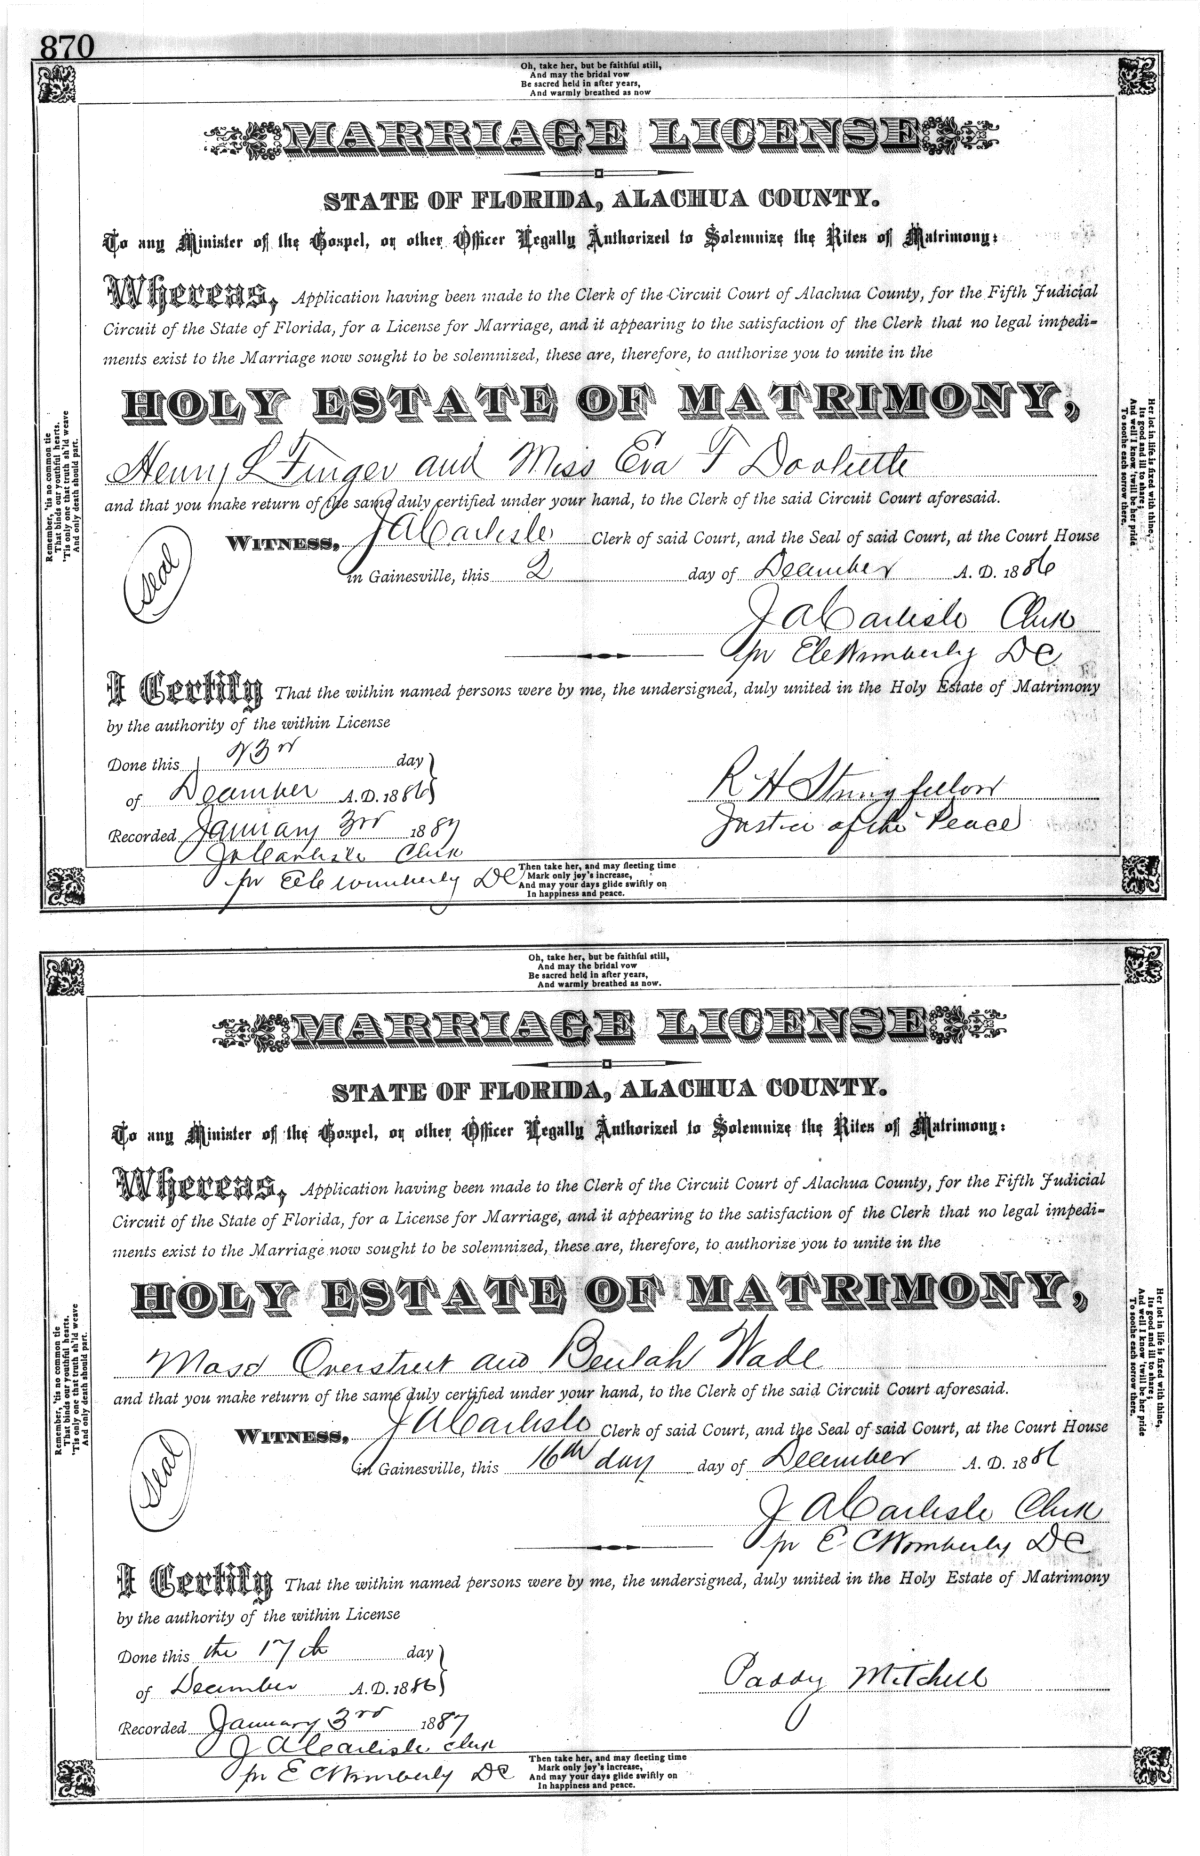 870
Oh, take her, but be faithful still,
And may the bridal vow
Be sacred held in after years,
And warmly breathed as now
MARRIAGE LICENSE
STATE OF FLORIDA, ALACHUA COUNTY.
To any Minister of the Gospel, or other Officer Legally Authorized to Solemnize the Rites of Matrimony:
Whereas, Application having been made to the Clerk of the Circuit Court of Alachua County, for the Fifth Judicial
Circuit of the State of Florida, for a License for Marriage, and it appearing to the satisfaction of the Clerk that no legal impedi-
ments exist to the Marriage now sought to be solemnized, these are, therefore, to authorize you to unite in the
HOLY ESTATE OF MATRIMONY,
Henry L Finger and Miss Eva F
and that you make return of the same duly certified under your hand, to the Clerk of the said Circuit Court aforesaid.
WITNESS, J A Carlisle Clerk of said Court, and the Seal of said Court, at the Court House
in Gainesville, this 2 day of December A. D. 1886
Seal
J A Carlisle Clerk
pr E C Wimberly DC
I Certify That the within named persons were by me, the undersigned, duly united in the Holy Estate of Matrimony
by the authority of the within License
Done this 23rd day
of December A.D. 1886
R H Stringfellow
Recorded January 3rd 1887
Justice of the Peace
J A Carlisle Clerk
pr E C Wimberly DC
Then take her, and may fleeting time
Mark only joy's increase,
And may your days glide swiftly on
In happiness and peace.
Remember, 'tis no common tie
That binds our youthful hearts.
'Tis only one that truth sh'ld weave
And only death should part.
Her lot in life is fixed with thine,
Its good and ill to share;
And well I know 'twill be her pride
To soothe each sorrow there.
Oh, take her, but be faithful still,
And may the bridal vow
Be sacred held in after years,
And warmly breathed as now.
MARRIAGE LICENSE
STATE OF FLORIDA, ALACHUA COUNTY.
To any Minister of the Gospel, or other Officer Legally Authorized to Solemnize the Rites of Matrimony:
Whereas, Application having been made to the Clerk of the Circuit Court of Alachua County, for the Fifth Judicial
Circuit of the State of Florida, for a License for Marriage, and it appearing to the satisfaction of the Clerk that no legal impedi-
ments exist to the Marriage now sought to be solemnized, these are, therefore, to authorize you to unite in the
HOLY ESTATE OF MATRIMONY,
Overstreet and Beulah Wade
and that you make return of the same duly certified under your hand, to the Clerk of the said Circuit Court aforesaid.
WITNESS, J A Carlisle Clerk of said Court, and the Seal of said Court, at the Court House
in Gainesville, this 16th day day of December A. D. 1886
Seal
J A Carlisle Clerk
pr E C Wimberly DC
I Certify That the within named persons were by me, the undersigned, duly united in the Holy Estate of Matrimony
by the authority of the within License
Done this the 17th day
of December A.D. 1886
Paddy Mitchell
Recorded January 3rd 1887
J A Carlisle Clerk
pr E C Wimberly DC
Then take her, and may fleeting time
Mark only joy's increase,
And may your days glide swiftly on
In happiness and peace.
Remember, 'tis no common tie
That binds our youthful hearts.
'Tis only one that truth sh'ld weave
And only death should part.
Her lot in life is fixed with thine,
Its good and ill to share;
And well I know 'twill be her pride
To soothe each sorrow there.